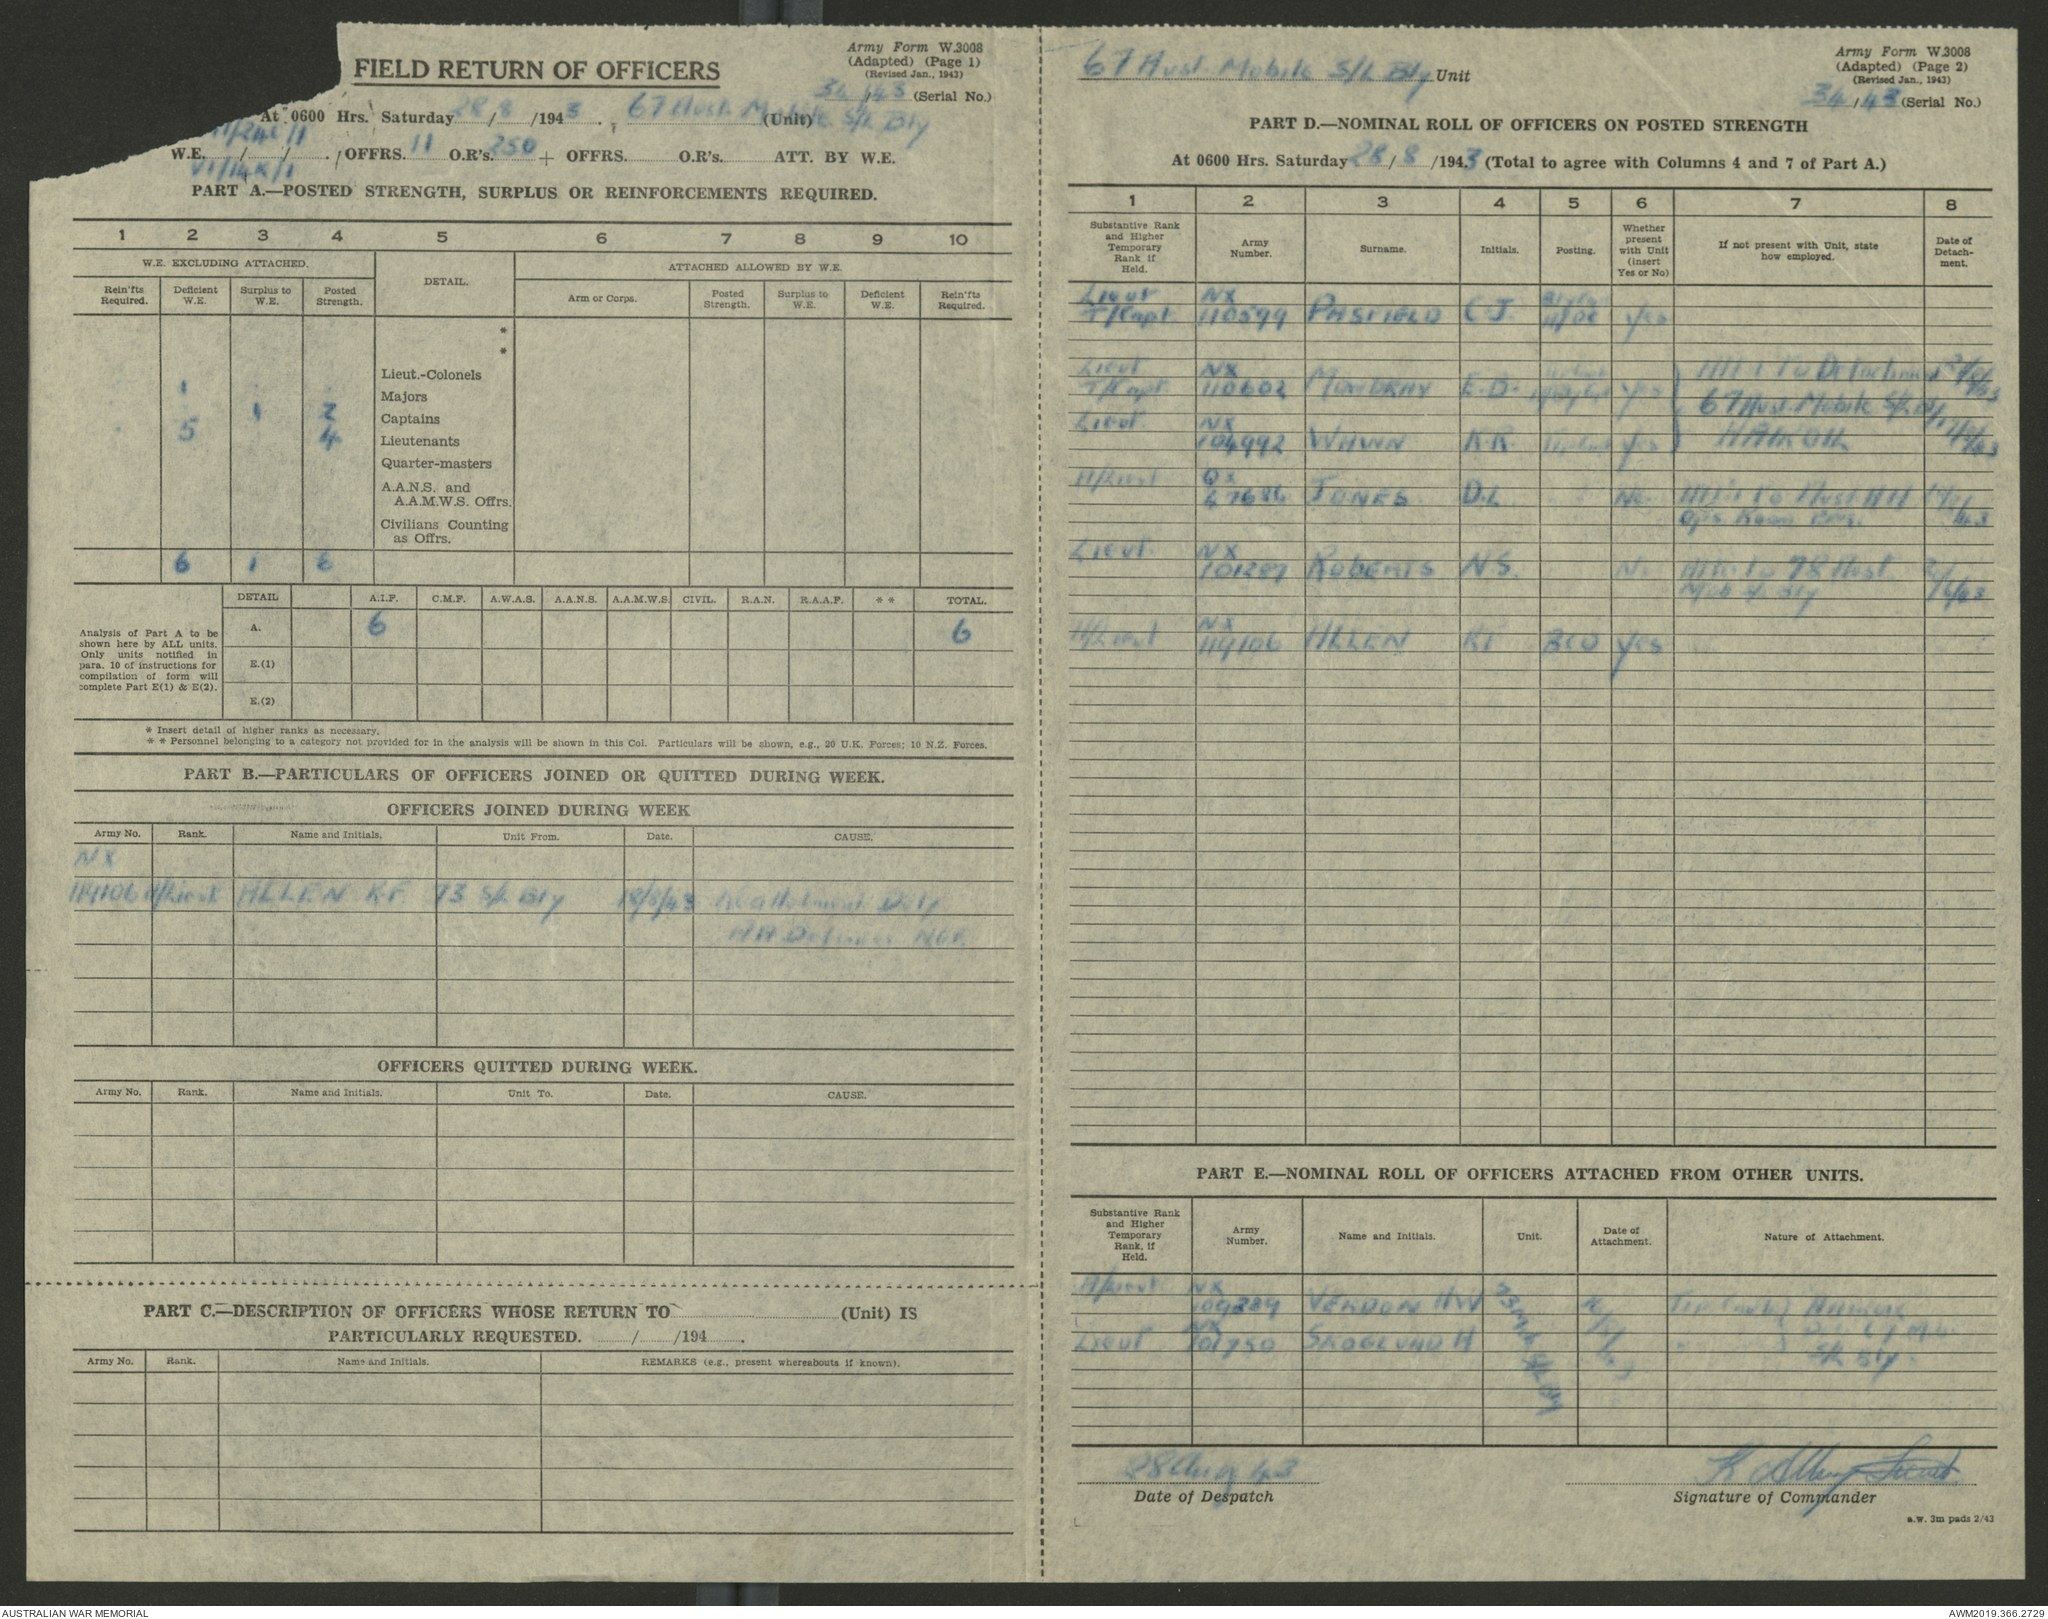 Army Form W.3008
(Adapted) (Page 1)
(Revised Jan., 1943)
FIELD RETURN OF OFFICERS
34/43 (Serial No.)
At 0600 Hrs. Saturday 28/8/1943. 67 Aust Mobile S/L Bty (Unit)
W.E. / / . OFFRS. 11 O.R's. 250 + OFFRS. O.R's. ATT. BY W.E.
PART A.—POSTED STRENGTH, SURPLUS OR REINFORCEMENTS REQUIRED.
1 2 3 4 5 6 7 8 9 10
W.E. EXCLUDING ATTACHED. DETAIL. ATTACHED ALLOWED BY W.E.
Rein'fts Required. Deficient W.E. Surplus to W.E. Posted Strength. Arm or Corps. Posted Strength. Surplus to W.E. Deficient W.E. Rein'fts Required.
*
*
Lieut.-Colonels
1 Majors
1 2 Captains
5 4 Lieutenants
Quarter-masters
A.A.N.S. and
A.A.M.W.S. Offrs.
Civilians Counting
as Offrs.
6 1 6
DETAIL A.I.F. C.M.F. A.W.A.S. A.A.N.S. A.A.M.W.S. CIVIL. R.A.N. R.A.A.F. * * TOTAL.
Analysis of Part A to be
shown here by ALL units.
Only units notified in
para. 10 of instructions for
compilation of form will
complete Part E(1) & E(2).
A. 6 6
E.(1)
E.(2)
* Insert detail of higher ranks as necessary.
* * Personnel belonging to a category not provided for in the analysis will be shown in this Col. Particulars will be shown, e.g., 20 U.K. Forces; 10 N.Z. Forces.
PART B.—PARTICULARS OF OFFICERS JOINED OR QUITTED DURING WEEK.
OFFICERS JOINED DURING WEEK
Army No. Rank. Name and Initials. Unit From. Date. CAUSE.
NX
114106 A/Lieut ALLEN K.F. 73 S/L Bty 18/8/43
AA Defences
OFFICERS QUITTED DURING WEEK.
Army No. Rank. Name and Initials. Unit To. Date. CAUSE.
PART C.—DESCRIPTION OF OFFICERS WHOSE RETURN TO (Unit) IS
PARTICULARLY REQUESTED. / /194 .
Army No. Rank. Name and Initials. REMARKS (e.g., present whereabouts if known).
67 Aust Mobile S/L Bty Unit
Army Form W.3008
(Adapted) (Page 2)
(Revised Jan., 1943)
34/43 (Serial No.)
PART D.—NOMINAL ROLL OF OFFICERS ON POSTED STRENGTH
At 0600 Hrs. Saturday 28/8/1943 (Total to agree with Columns 4 and 7 of Part A.)
1 2 3 4 5 6 7 8
Substantive Rank and Higher Temporary Rank if Held. Army Number. Surname. Initials. Posting. Whether present with Unit (insert Yes or No) If not present with Unit, state how employed. Date of Detachment.
Lieut NX
T/Capt 110599 PASFIELD C.J. Yes
Lieut NX Att to Detachment
T/Capt 110602 MOWBRAY E.D. Yes 67 Aust Mobile S/L Bty
Lieut NX
104992 WHWN K.R. Yes
A/Lieut QX
67686 JONES D.L No. Att to Aust AA
Ops Room
Lieut NX
101287 ROBERTS N.S. No Att to 78 Aust
Bty /6/43
A/Lieut NX
114106 ALLEN KF BCO Yes
PART E.—NOMINAL ROLL OF OFFICERS ATTACHED FROM OTHER UNITS.
Substantive Rank and Higher Temporary Rank, if Held. Army Number. Name and Initials. Unit. Date of Attachment. Nature of Attachment.
A/Lieut NX
109289 VERDON HW 73 S/L Bty
Lieut NX
101750 SKOGLUND H
28 Aug 43
Date of Despatch
K Allen Lieut
Signature of Commander
a.w. 3m pads 2/43
AUSTRALIAN WAR MEMORIAL
AWM2019.366.2729